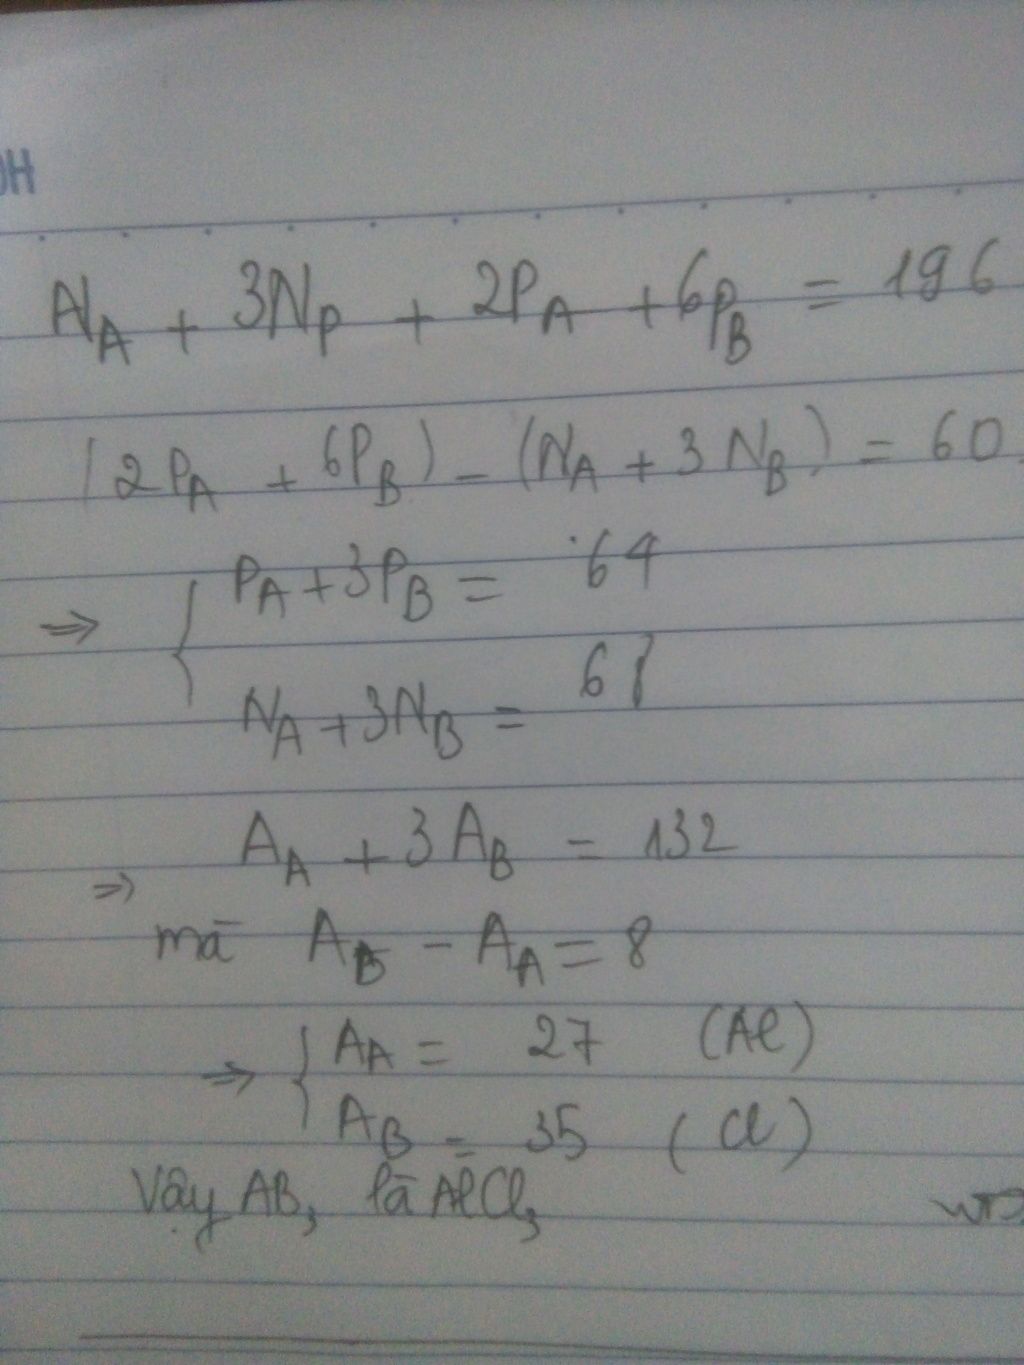 OH
N_A + 3N_P + 2P_A + 6P_B = 196
(2P_A + 6P_B) - (N_A + 3N_B) = 60
⇒ { P_A + 3P_B = 64
N_A + 3N_B = 68
⇒ A_A + 3A_B = 132
mà A_B - A_A = 8
⇒ { A_A = 27 (Al)
A_B = 35 (Cl)
Vậy AB₃ là AlCl₃